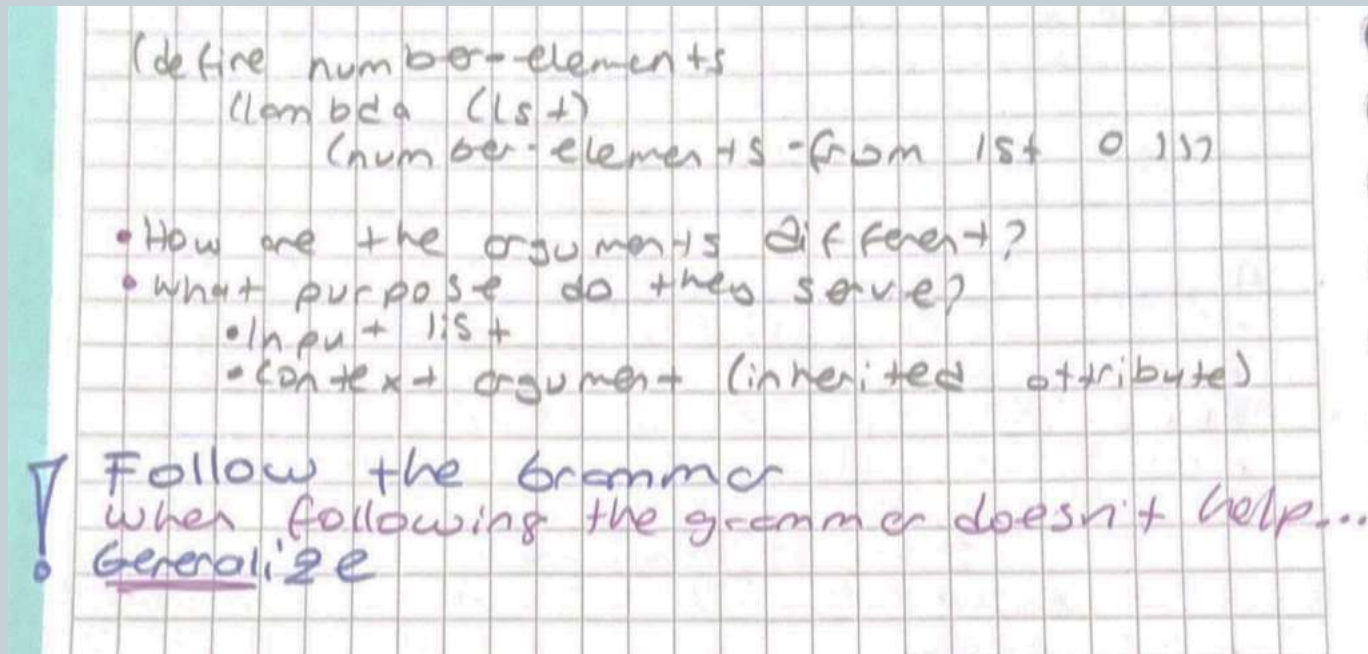 (define number-elements
(lambda (lst)
(number-elements-from lst 0)))
• How are the arguments different?
• What purpose do they serve?
• Input list
• Context argument (inherited attribute)
! Follow the Grammar
When following the grammar doesn't help...
Generalize